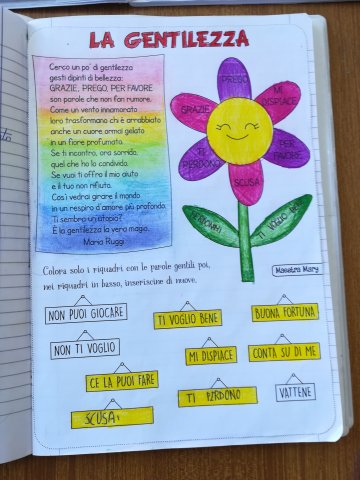 LA GENTILEZZA
Cerco un po' di gentilezza
gesti dipinti di bellezza:
GRAZIE, PREGO, PER FAVORE
son parole che non fan rumore.
Come un vento innamorato
loro trasformano chi è arrabbiato
anche un cuore ormai gelato
in un fiore profumato.
Se ti incontro, ora sorrido,
quel che ho lo condivido.
Se vuoi ti offro il mio aiuto
e il tuo non rifiuto.
Così vedrai girare il mondo
in un respiro d'amore più profondo.
Ti sembra un'utopia?
È la gentilezza la vera magia.
Maria Ruggi
PREGO
MI
DISPIACE
GRAZIE
PER
FAVORE
TI
PERDONO
SCUSA
TI VOGLIO
Maestra Mary
Colora solo i riquadri con le parole gentili poi,
nei riquadri in basso, inseriscine di nuove.
NON PUOI GIOCARE
TI VOGLIO BENE
BUONA FORTUNA
NON TI VOGLIO
MI DISPIACE
CONTA SU DI ME
CE LA PUOI FARE
TI PERDONO
VATTENE
SCUSA